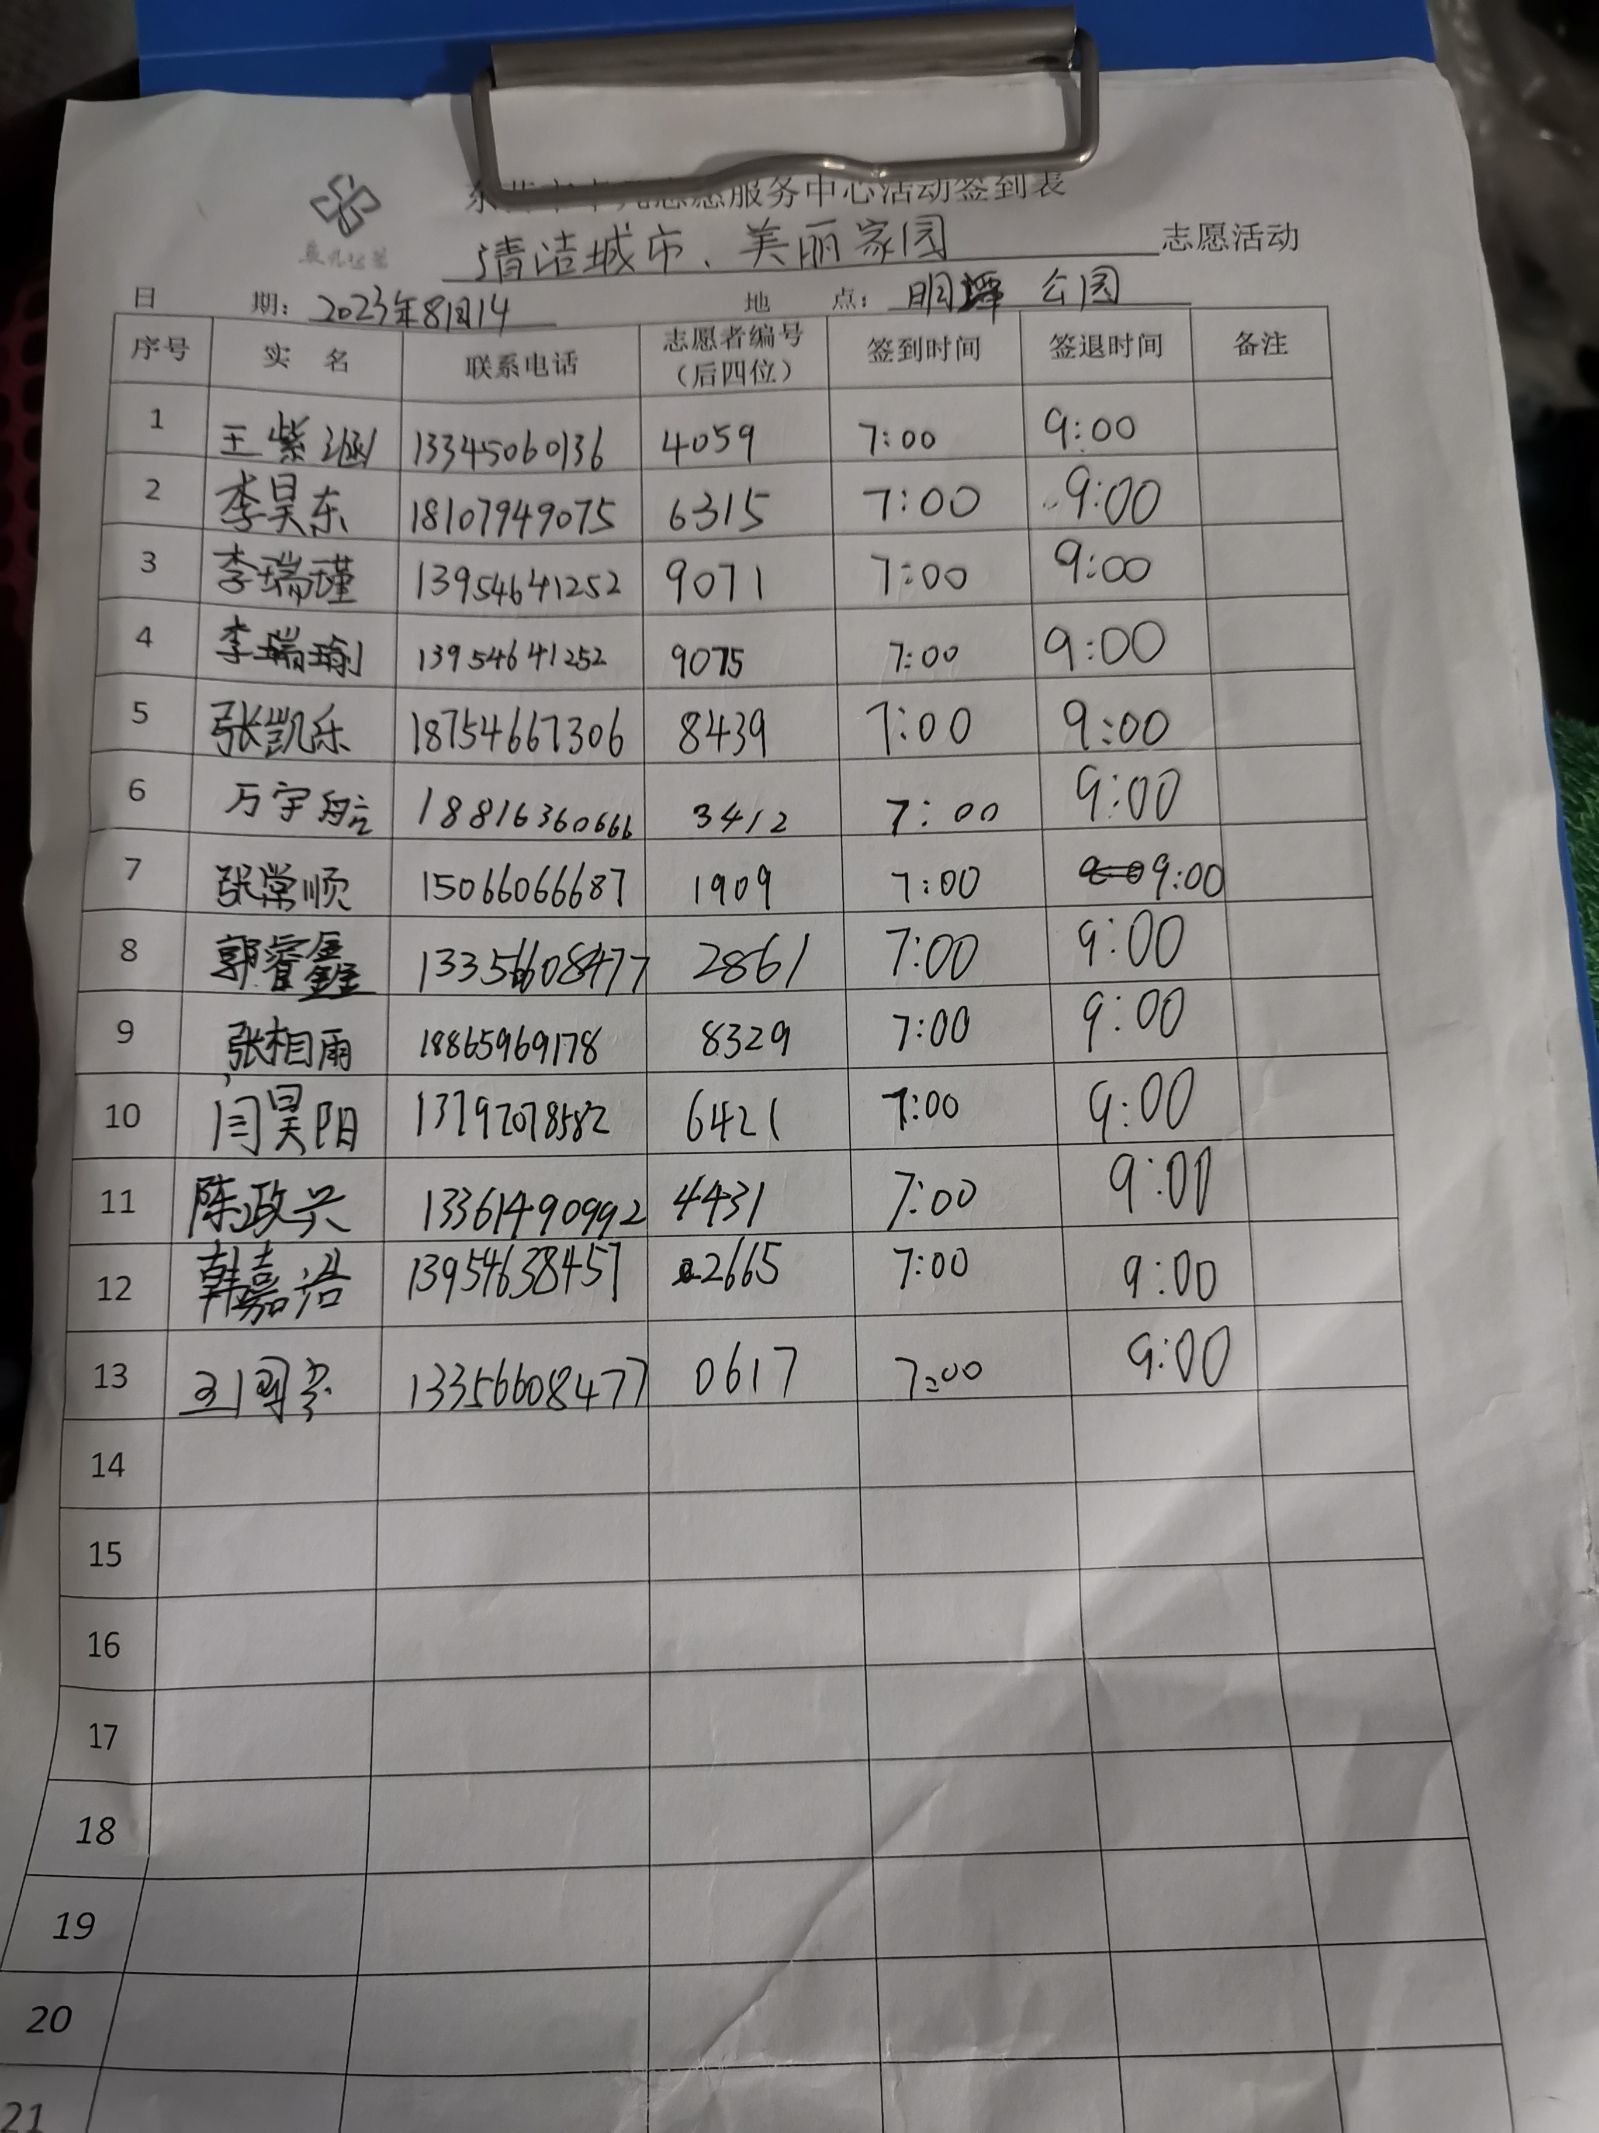 志愿服务中心活动签到表
清洁城市、美丽家园 志愿活动
日期：2023年8月14 地点：明潭公园
序号 实名 联系电话 志愿者编号（后四位） 签到时间 签退时间 备注
1 王紫涵 13345060136 4059 7:00 9:00
2 李昊东 18107949075 6315 7:00 9:00
3 李瑞瑾 13954641252 9071 7:00 9:00
4 李瑞瑜 13954641252 9075 7:00 9:00
5 张凯乐 18754667306 8439 7:00 9:00
6 万宇航 18816360666 3412 7:00 9:00
7 张常顺 15066066687 1909 7:00 9:00
8 郭睿鑫 13356608477 2861 7:00 9:00
9 张相雨 18865969178 8329 7:00 9:00
10 闫昊阳 13792078582 6421 7:00 9:00
11 陈政兴 13361490992 4431 7:00 9:00
12 韩嘉浩 13954638457 2665 7:00 9:00
13 13356608477 0617 7:00 9:00
14
15
16
17
18
19
20
21